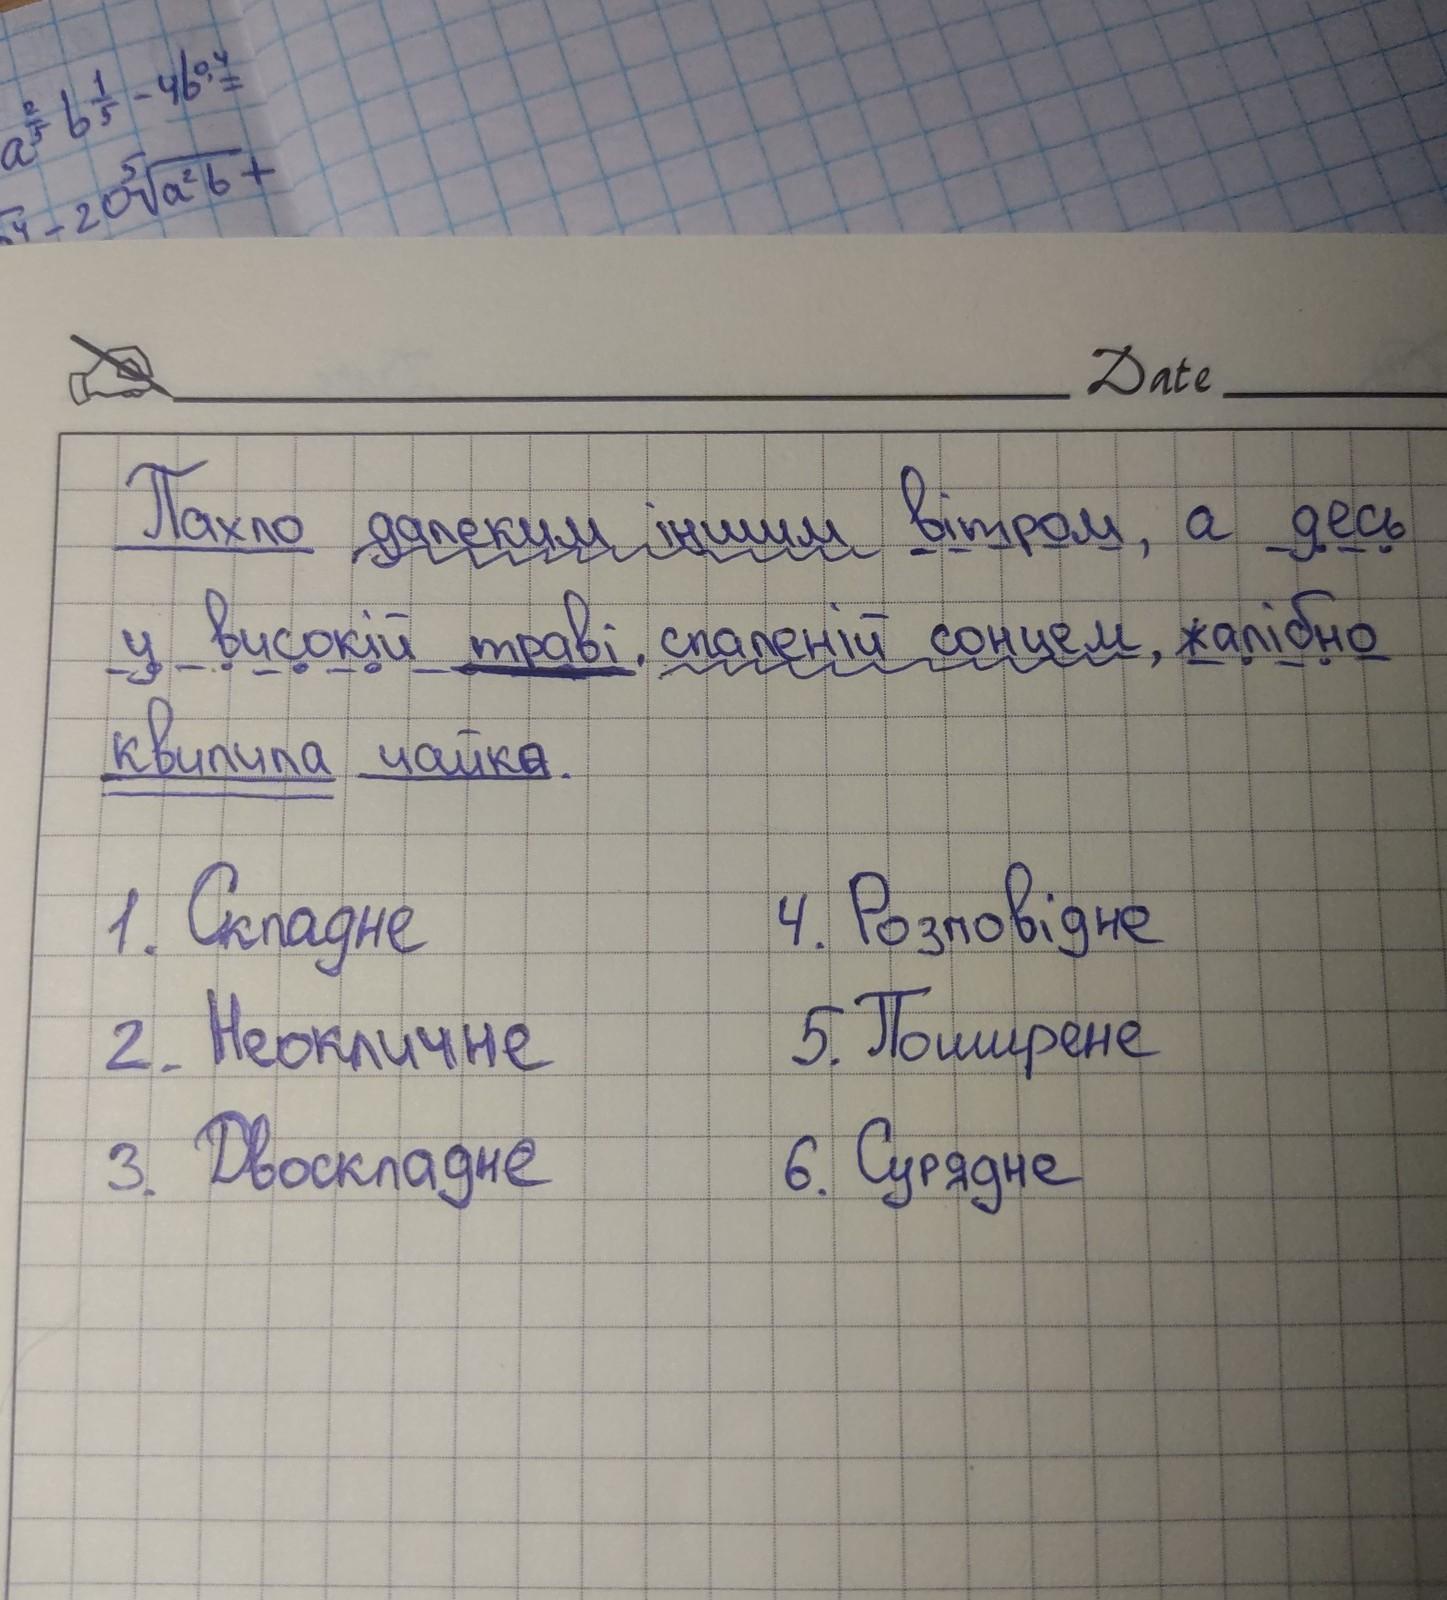 a^{2/5} b^{1/5} - 4b^{0,4} =
- 20 ⁵√a²b +
Date
Пахло далеким іншим вітром, а десь
у високій траві, спаленій сонцем, жалібно
квилила чайка.
1. Складне
2. Неокличне
3. Двоскладне
4. Розповідне
5. Поширене
6. Сурядне